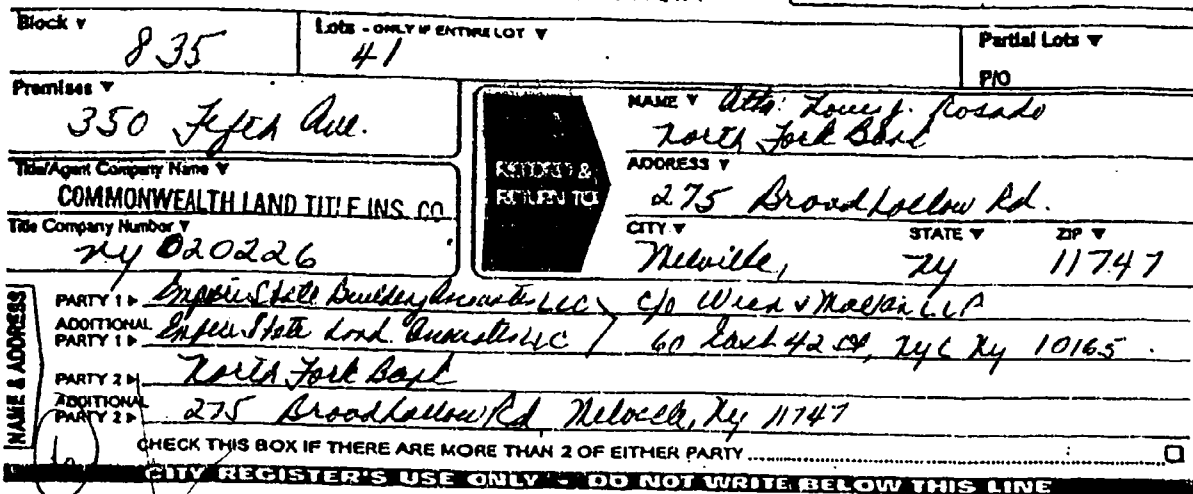 Block ▼
835
Lots - ONLY IF ENTIRE LOT ▼
41
Partial Lots ▼
P/O
Premises ▼
350 Fifth Ave.
Title/Agent Company Name ▼
COMMONWEALTH LAND TITLE INS. CO.
Title Company Number ▼
NY 020226
RECORD &
RETURN TO:
NAME ▼ Attn: Louis J. Rosado
North Fork Bank
ADDRESS ▼
275 Broadhollow Rd.
CITY ▼ STATE ▼ ZIP ▼
Melville, NY 11747
NAME & ADDRESS
PARTY 1 ▶ Empire State Building Associates LLC c/o Wien & Malkin LLP
ADDITIONAL PARTY 1 ▶ Empire State Land Associates LLC 60 East 42 St, NYC NY 10165
PARTY 2 ▶ North Fork Bank
ADDITIONAL PARTY 2 ▶ 275 Broadhollow Rd, Melville, NY 11747
CHECK THIS BOX IF THERE ARE MORE THAN 2 OF EITHER PARTY
CITY REGISTER'S USE ONLY - DO NOT WRITE BELOW THIS LINE